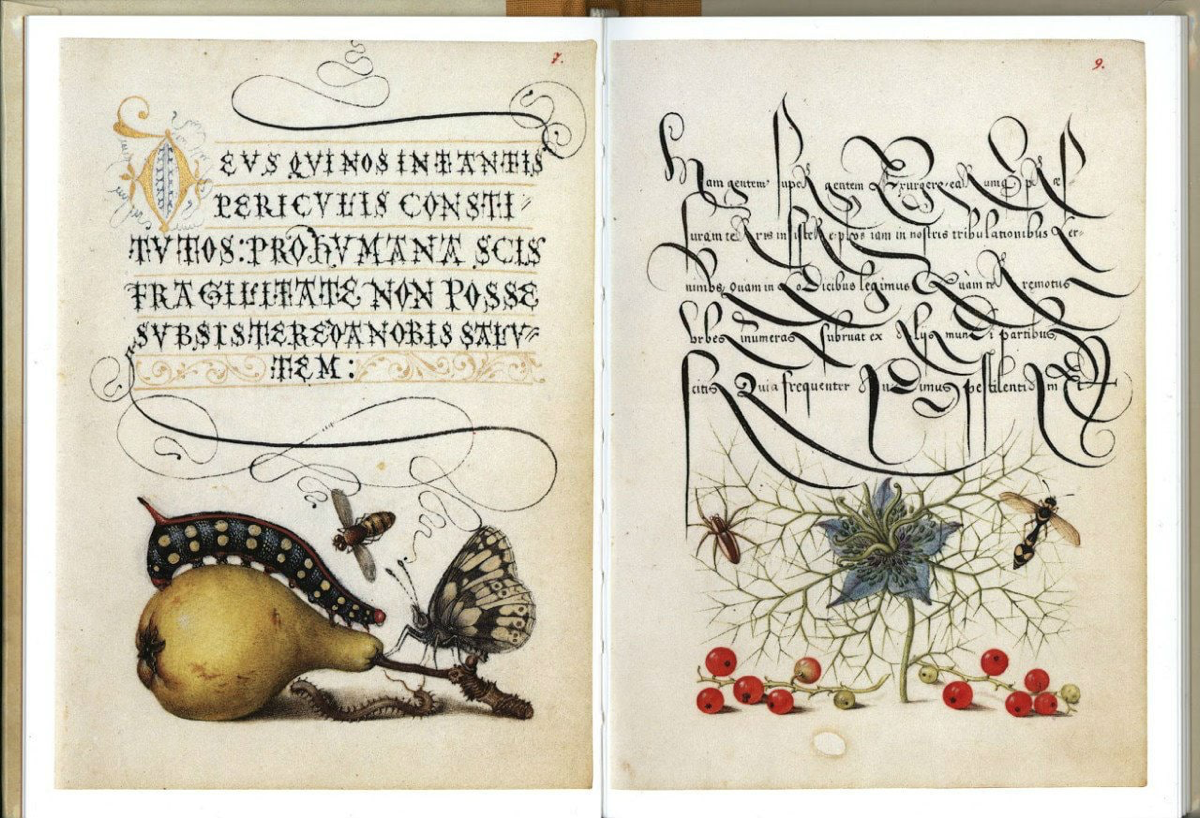 7.
DEVS QVI NOS IN TANTIS
PERICVLIS CONSTI=
TVTOS: PRO HVMANA SCIS
FRAGILITATE NON POSSE
SVBSISTERE DA NOBIS SALV=
TEM:
9.
Nam gentem super gentem Exurgere, earumq; præs
suram terris insistere, plus iam in nostris tribulationibus Cer-
nimus, Quam in Codicibus legimus Quam terre motus
Vrbes innumeras subruat ex alijs mundi partibus,
scitis Quia frequenter Audimus pestilentiam